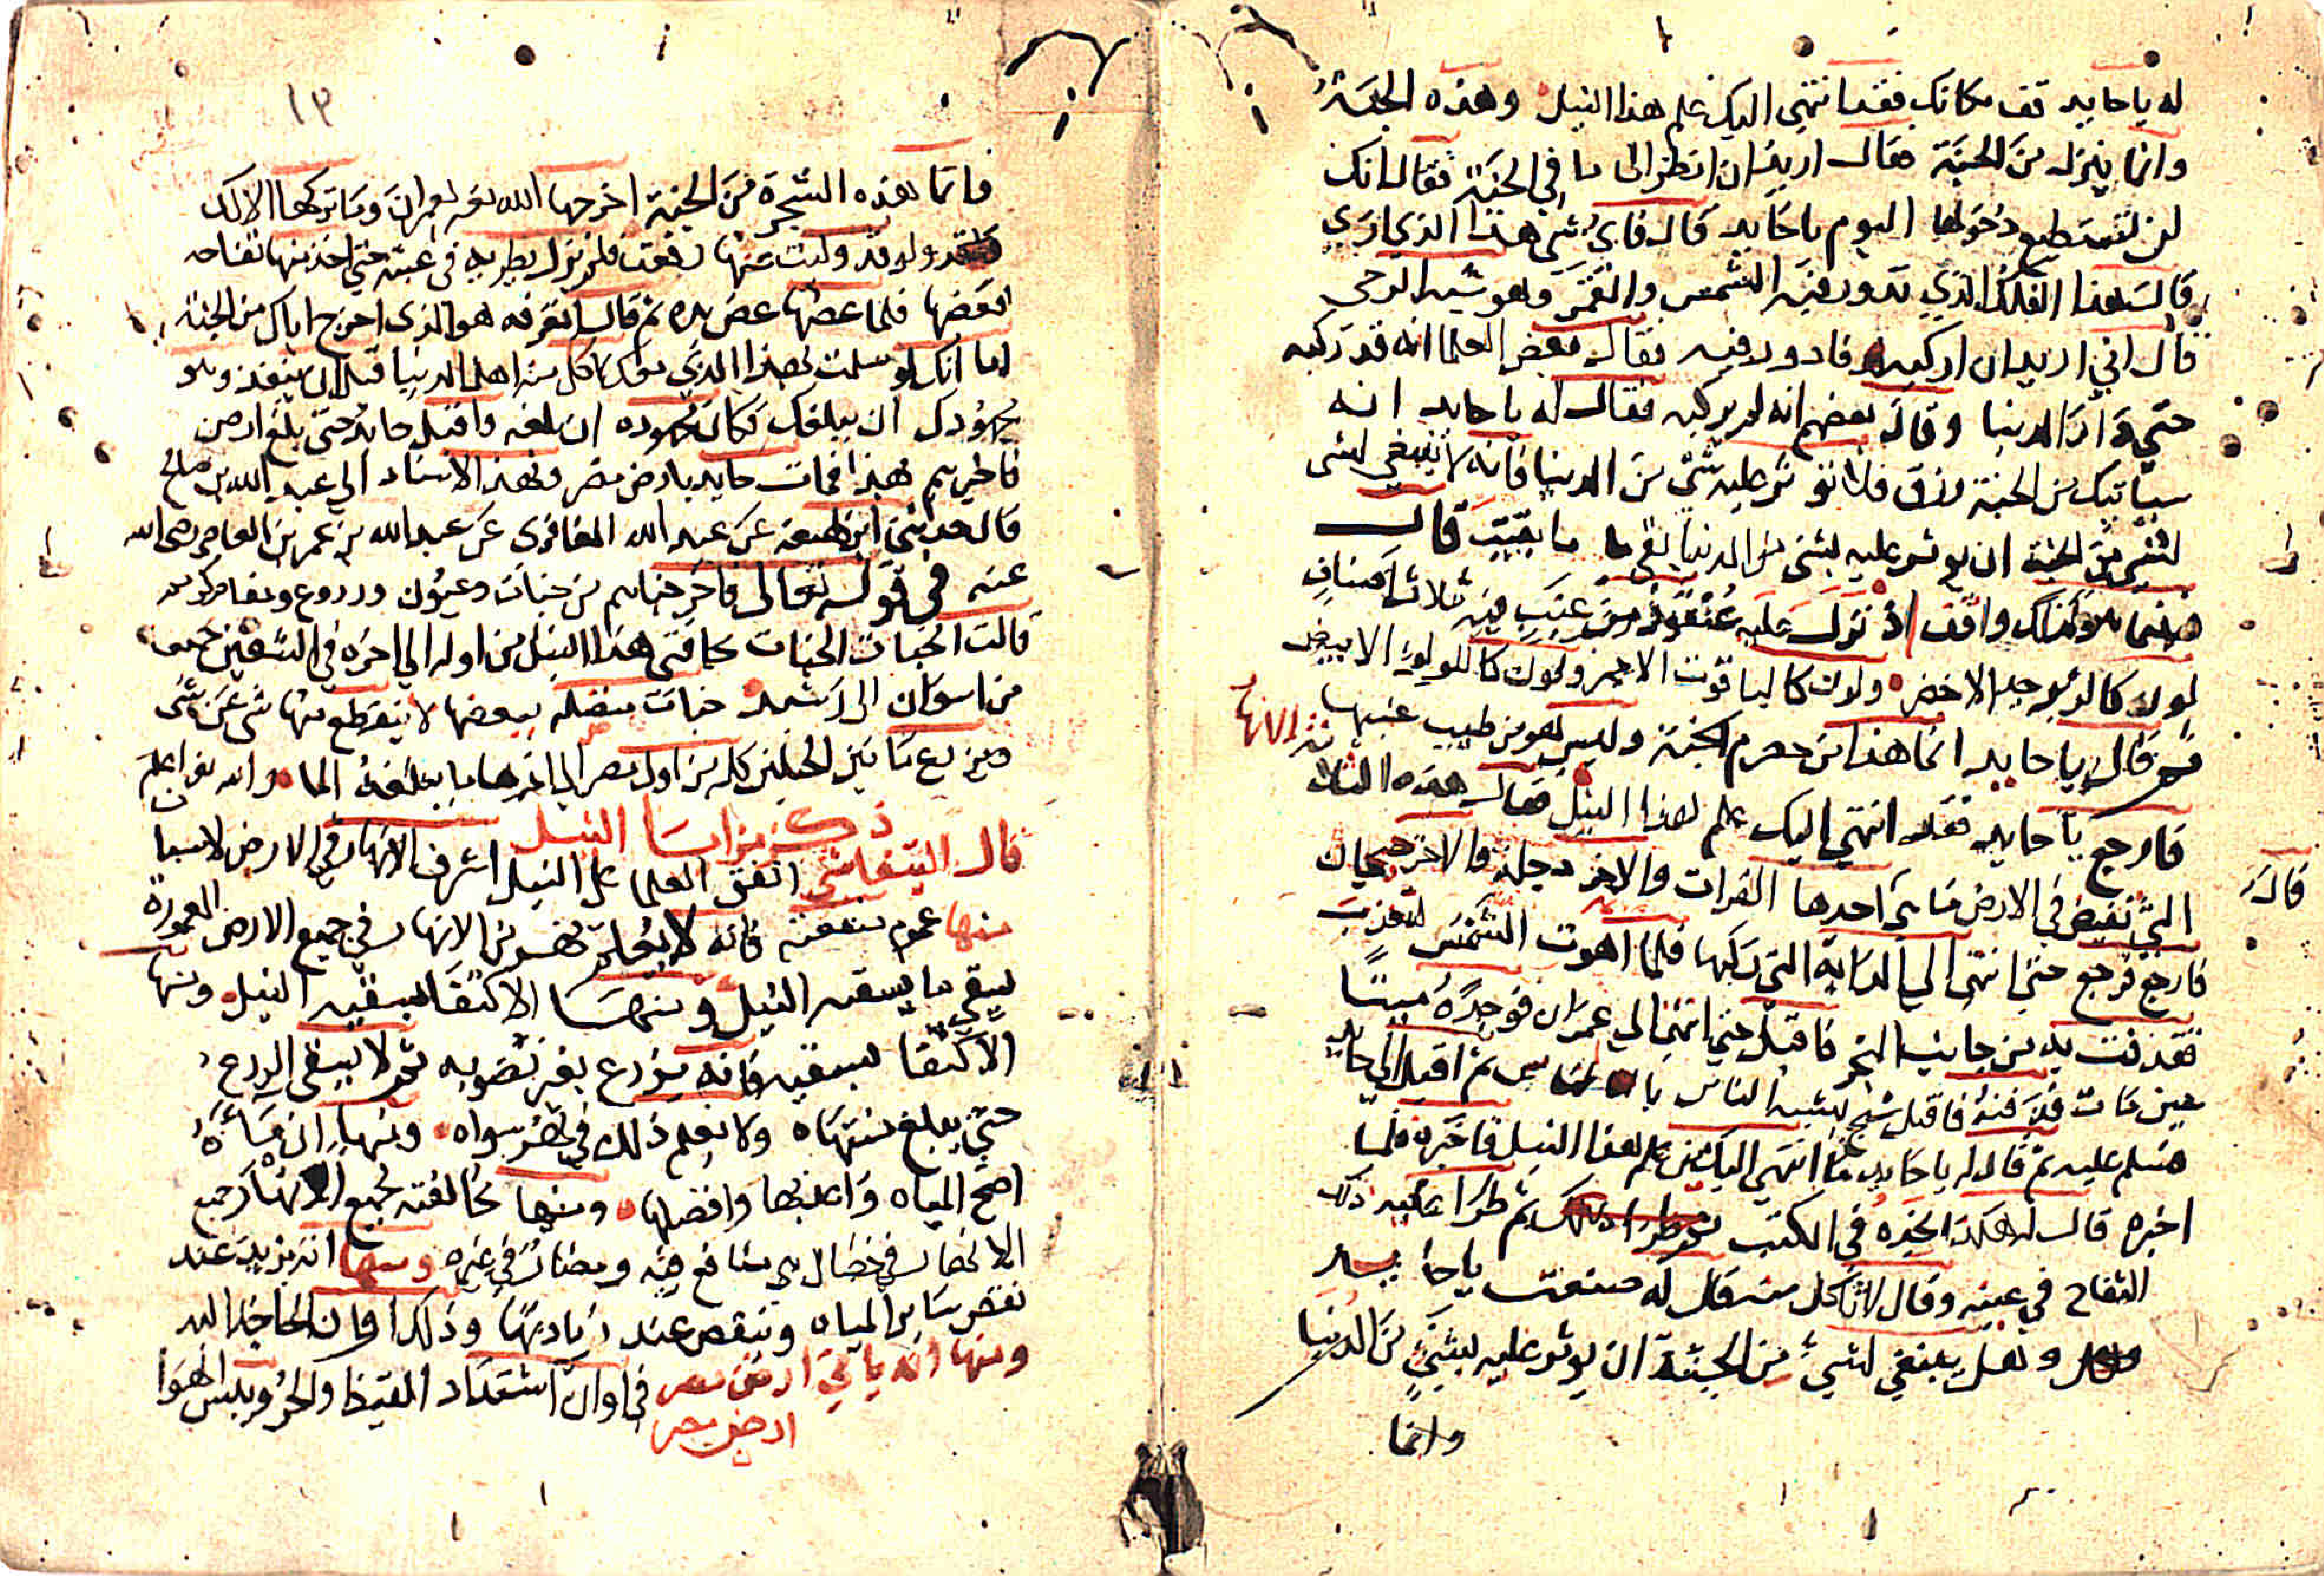 له يا حايد قف مكانك فقد انتهي اليك علم هذا النيل وهذه الجنة
وانما ينزل من الجنة فقال اريد ان انظر الى ما في الجنة فقال انك
لن تستطيع دخولها اليوم يا حايد قال فاي شي هذا الذي اري
قال هذا الفلك الذي تدور فيه الشمس والقمر وهو شبه الرحى
قال اني اريد ان اركبه فادور فيه فقال بعض العلما انه قد ركبه
حتي دار الدنيا وقال بعضهم انه لم يركبه فقال له يا حايد انه
سياتيك من الجنة رزق فلا توثر عليه شي من الدنيا فانه لا ينبغي لشي
لشي من الجنة ان يوثر عليه بشي من الدنيا بقي ما بقيت قال
فبينما هو كذلك واقف اذ نزل عليه عنقود من عنب فيه ثلاث اصناف
لون كالزبرجد الاخضر ولون كالياقوت الاحمر ولون كاللولو الابيض
ثم قال يا حايد انما هذا من حصرم الجنة وليس هو من طيب عنبها
فارجع يا حايد فقد انتهي اليك علم هذا النيل فقال هذه الثلاثة الانهار
التي تفيض في الارض ما هي احدها الفرات والاخر دجلة والاخر جيحان
قال
فارجع فرجع حتي انتهى الي الدابة التي ركبها فلما اهوت الشمس لتغرب
فقذفت به من جانب البحر فاقبل حتي انتهي الي عمران فوجده ميتا
حين مات فدفنه فاقبل شيخ يشبه الناس ثم اقبل الي حايد
فسلم عليه ثم قال له يا حايد ما انتهي اليك من علم هذا النيل فاخبره فلما
اخبره قال له هكذا نجده في الكتب ثم طرا عليه ذلك
التفاح في عينه وقال لا تاكل منه قال له صنعت يا حايد
وهل ينبغي لشي من الجنة ان يوثر عليه بشي من الدنيا
وانما
١٣
فانما هذه الشجرة من الجنة اخرجها الله لعمران وما تركها الا لك
ولو قد وليت عنها رفعت فلم يزل يطريه في عينه حتي اخذ منها تفاحة
فعضها فلما عضها عض يده ثم قال اتعرفه هو الذي اخرج اباك من الجنة
اما انك لو سلمت لهذا الذي معك لاكل منه اهل الدنيا قبل ان ينفد وهو
مجهودك ان يبلغك فكان مجهوده ان بلغه واقبل حايد حتي بلغ ارض
فاخبرهم بهذا فمات حايد بارض مصر وبهذا الاسناد الي عبد الله بن صالح
قال حدثني ابن لهيعة عن عبد الله المغافري عن عبد الله بن عمر بن العاص رضى الله
عنه في قوله تعالى فاخرجناهم من جنات وعيون وزروع ومقام كريم
قالت الجنات الجنات بحافتي هذا النيل من اوله الي اخره في الشقين جميعا
من اسوان الى رشيد جنات متصلة ببعضها لا ينقطع منها شي عن شي
ويزرع ما بين الجبلين كله من اول مصر الي اخرها ما يبلغه الما والله اعلم
ذكر مزايا النيل
قال التيفاشي اتفق العلما علي ان النيل اشرف الانهار في الارض لاسباب
منها عموم منفعته فانه لا يعلم نهر من الانهار في جميع الارض المعمورة
يسقي ما يسقيه النيل ومنها الاكتفا بسقيه النيل ومنها
الاكتفا بسقيه فانه يزرع بعد نضوبه ثم لا يسقى الزرع
حتي يبلغ منتهاه ولا يعلم ذلك في نهر سواه ومنها ان ماءه
اصح المياه واعذبها وافضلها ومنها مخالفته لجميع الانهار جميع
الانهار في خصال هي منافع فيه ومضار في غيره ومنها انه يزيد عند
نقص ساير المياه وينقص عند زيادتها وذلك اوان الحاجة اليه
ومنها انه ياتي ارض مصر في اوان اشتداد القيظ والحر ويبس الهوا
ارض مصر